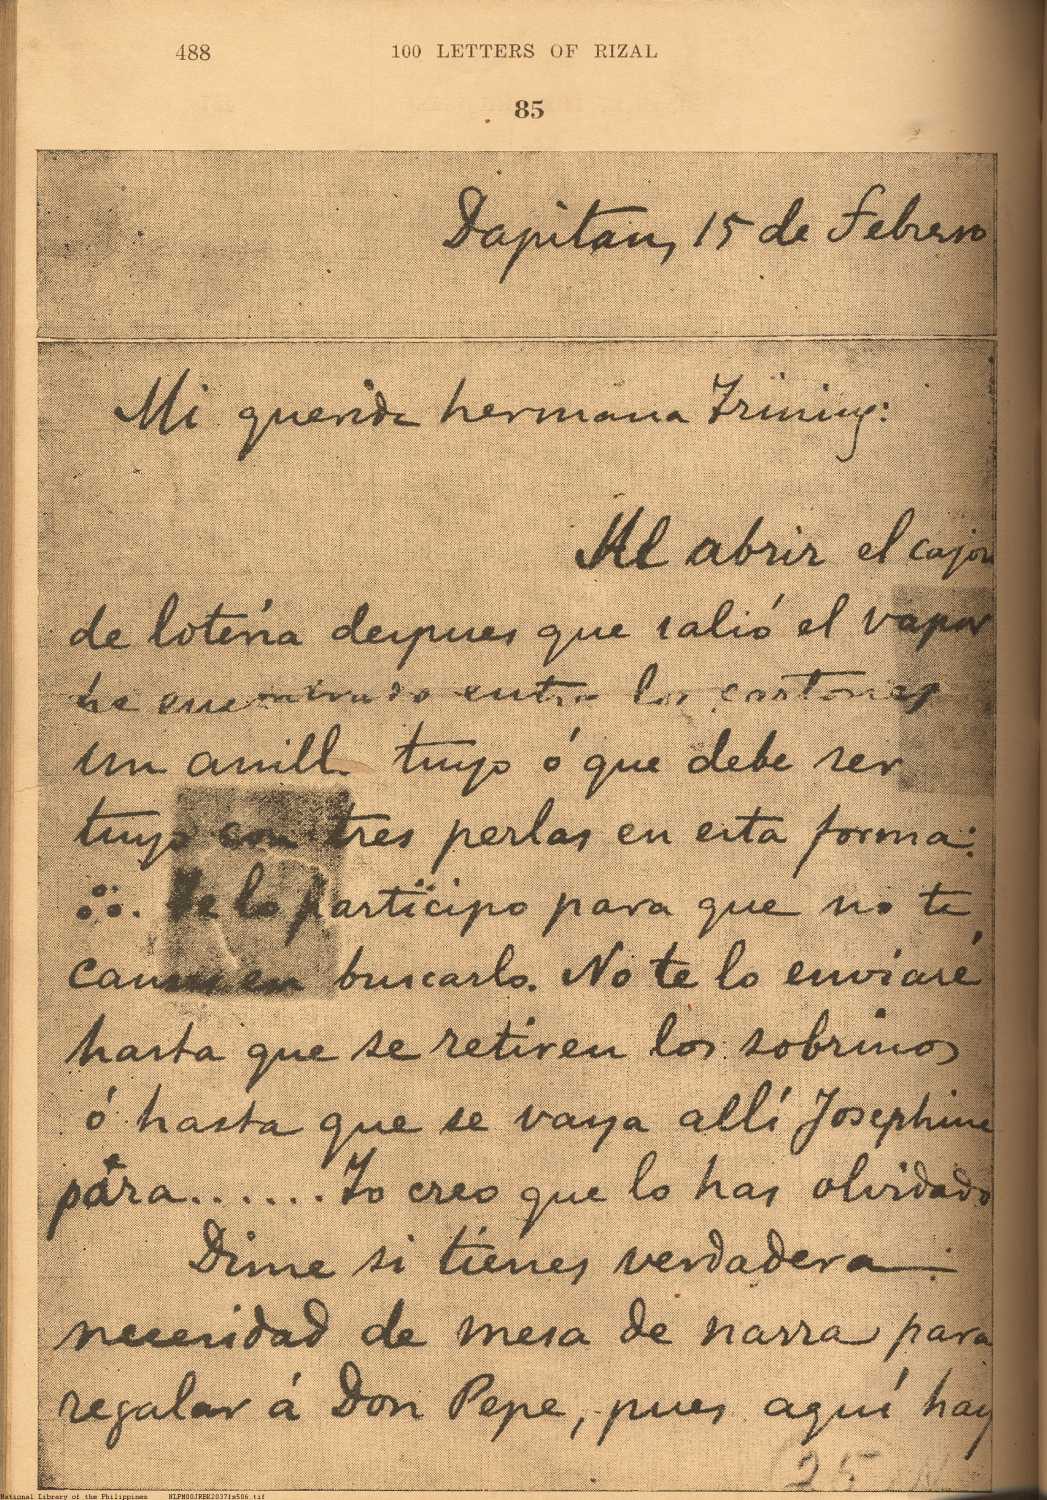 488 100 LETTERS OF RIZAL
85
Dapitan, 15 de Febrero
Mi querida hermana Trining:
Al abrir el cajon
de lotería despues que salió el vapor
he encontrado entre los cartones
un anillo tuyo ó que debe ser
tuyo con tres perlas en esta forma:
Te lo participo para que no te
canses en buscarlo. No te lo enviaré
hasta que se retiren los sobrinos
ó hasta que se vaya allí Josephine
pára...... Yo creo que lo has olvidado
Dime si tienes verdadera
necesidad de mesa de narra para
regalar á Don Pepe, pues aquí hay
25
National Library of the Philippines NLPM00JRBK20371s506.tif